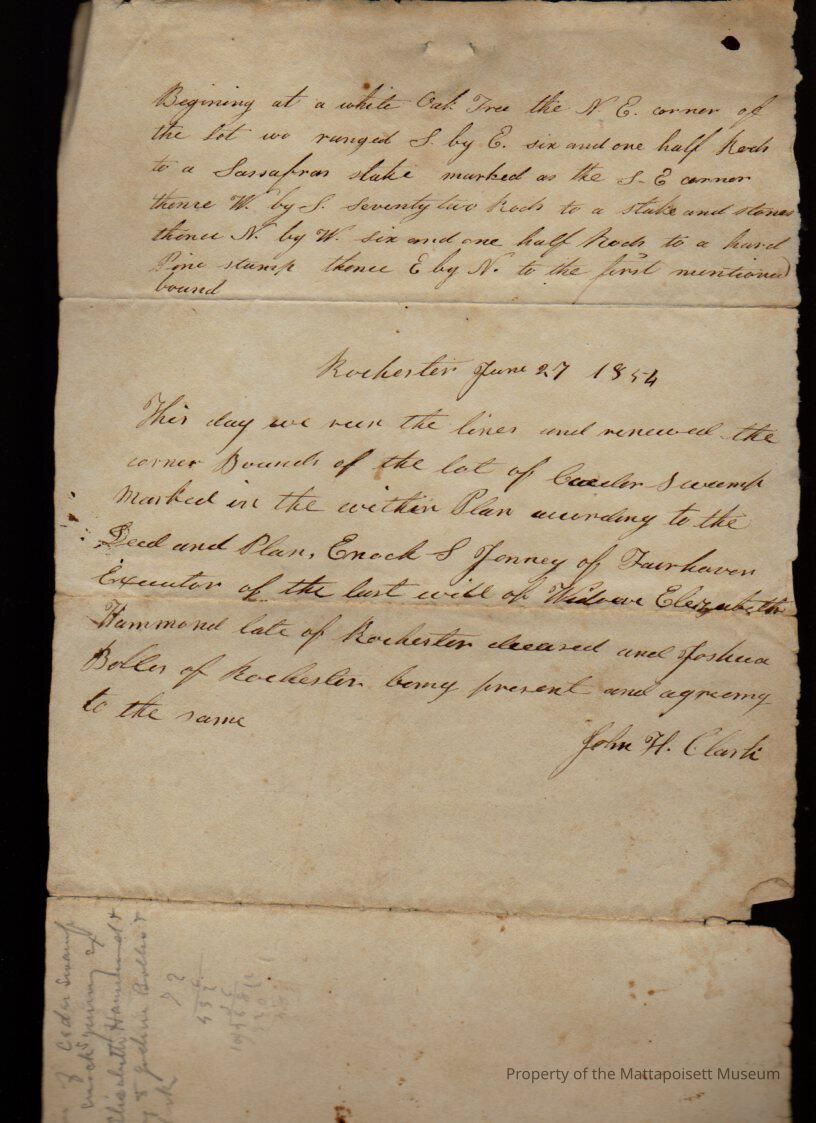 Begining at a white Oak Tree the N E. corner of
the lot we ranged S. by E. six and one half Rods
to a Sassafras stake marked as the S-E corner
thence W. by S. seventy two Rods to a stake and stones
thence N. by W. six and one half Rods to a hard
Pine stump thence E by N. to the first mentioned
bound
Rochester June 27 1854
This day we run the lines and renewed the
corner Bounds of the lot of Ceeder Swamp
Marked in the within Plan acording to the
Deed and Plan, Enoch S Jenney of Fairhaven
Executor of the last will of Widow Elizabeth
Hammond late of Rochester deceased and Joshua
Bolles of Rochester being present and agreeing
to the same
John H. Clark
of Ceder Swamp
Enoch S Jenney Ex
Elizabeth Hammond &
Bolles
Property of the Mattapoisett Museum